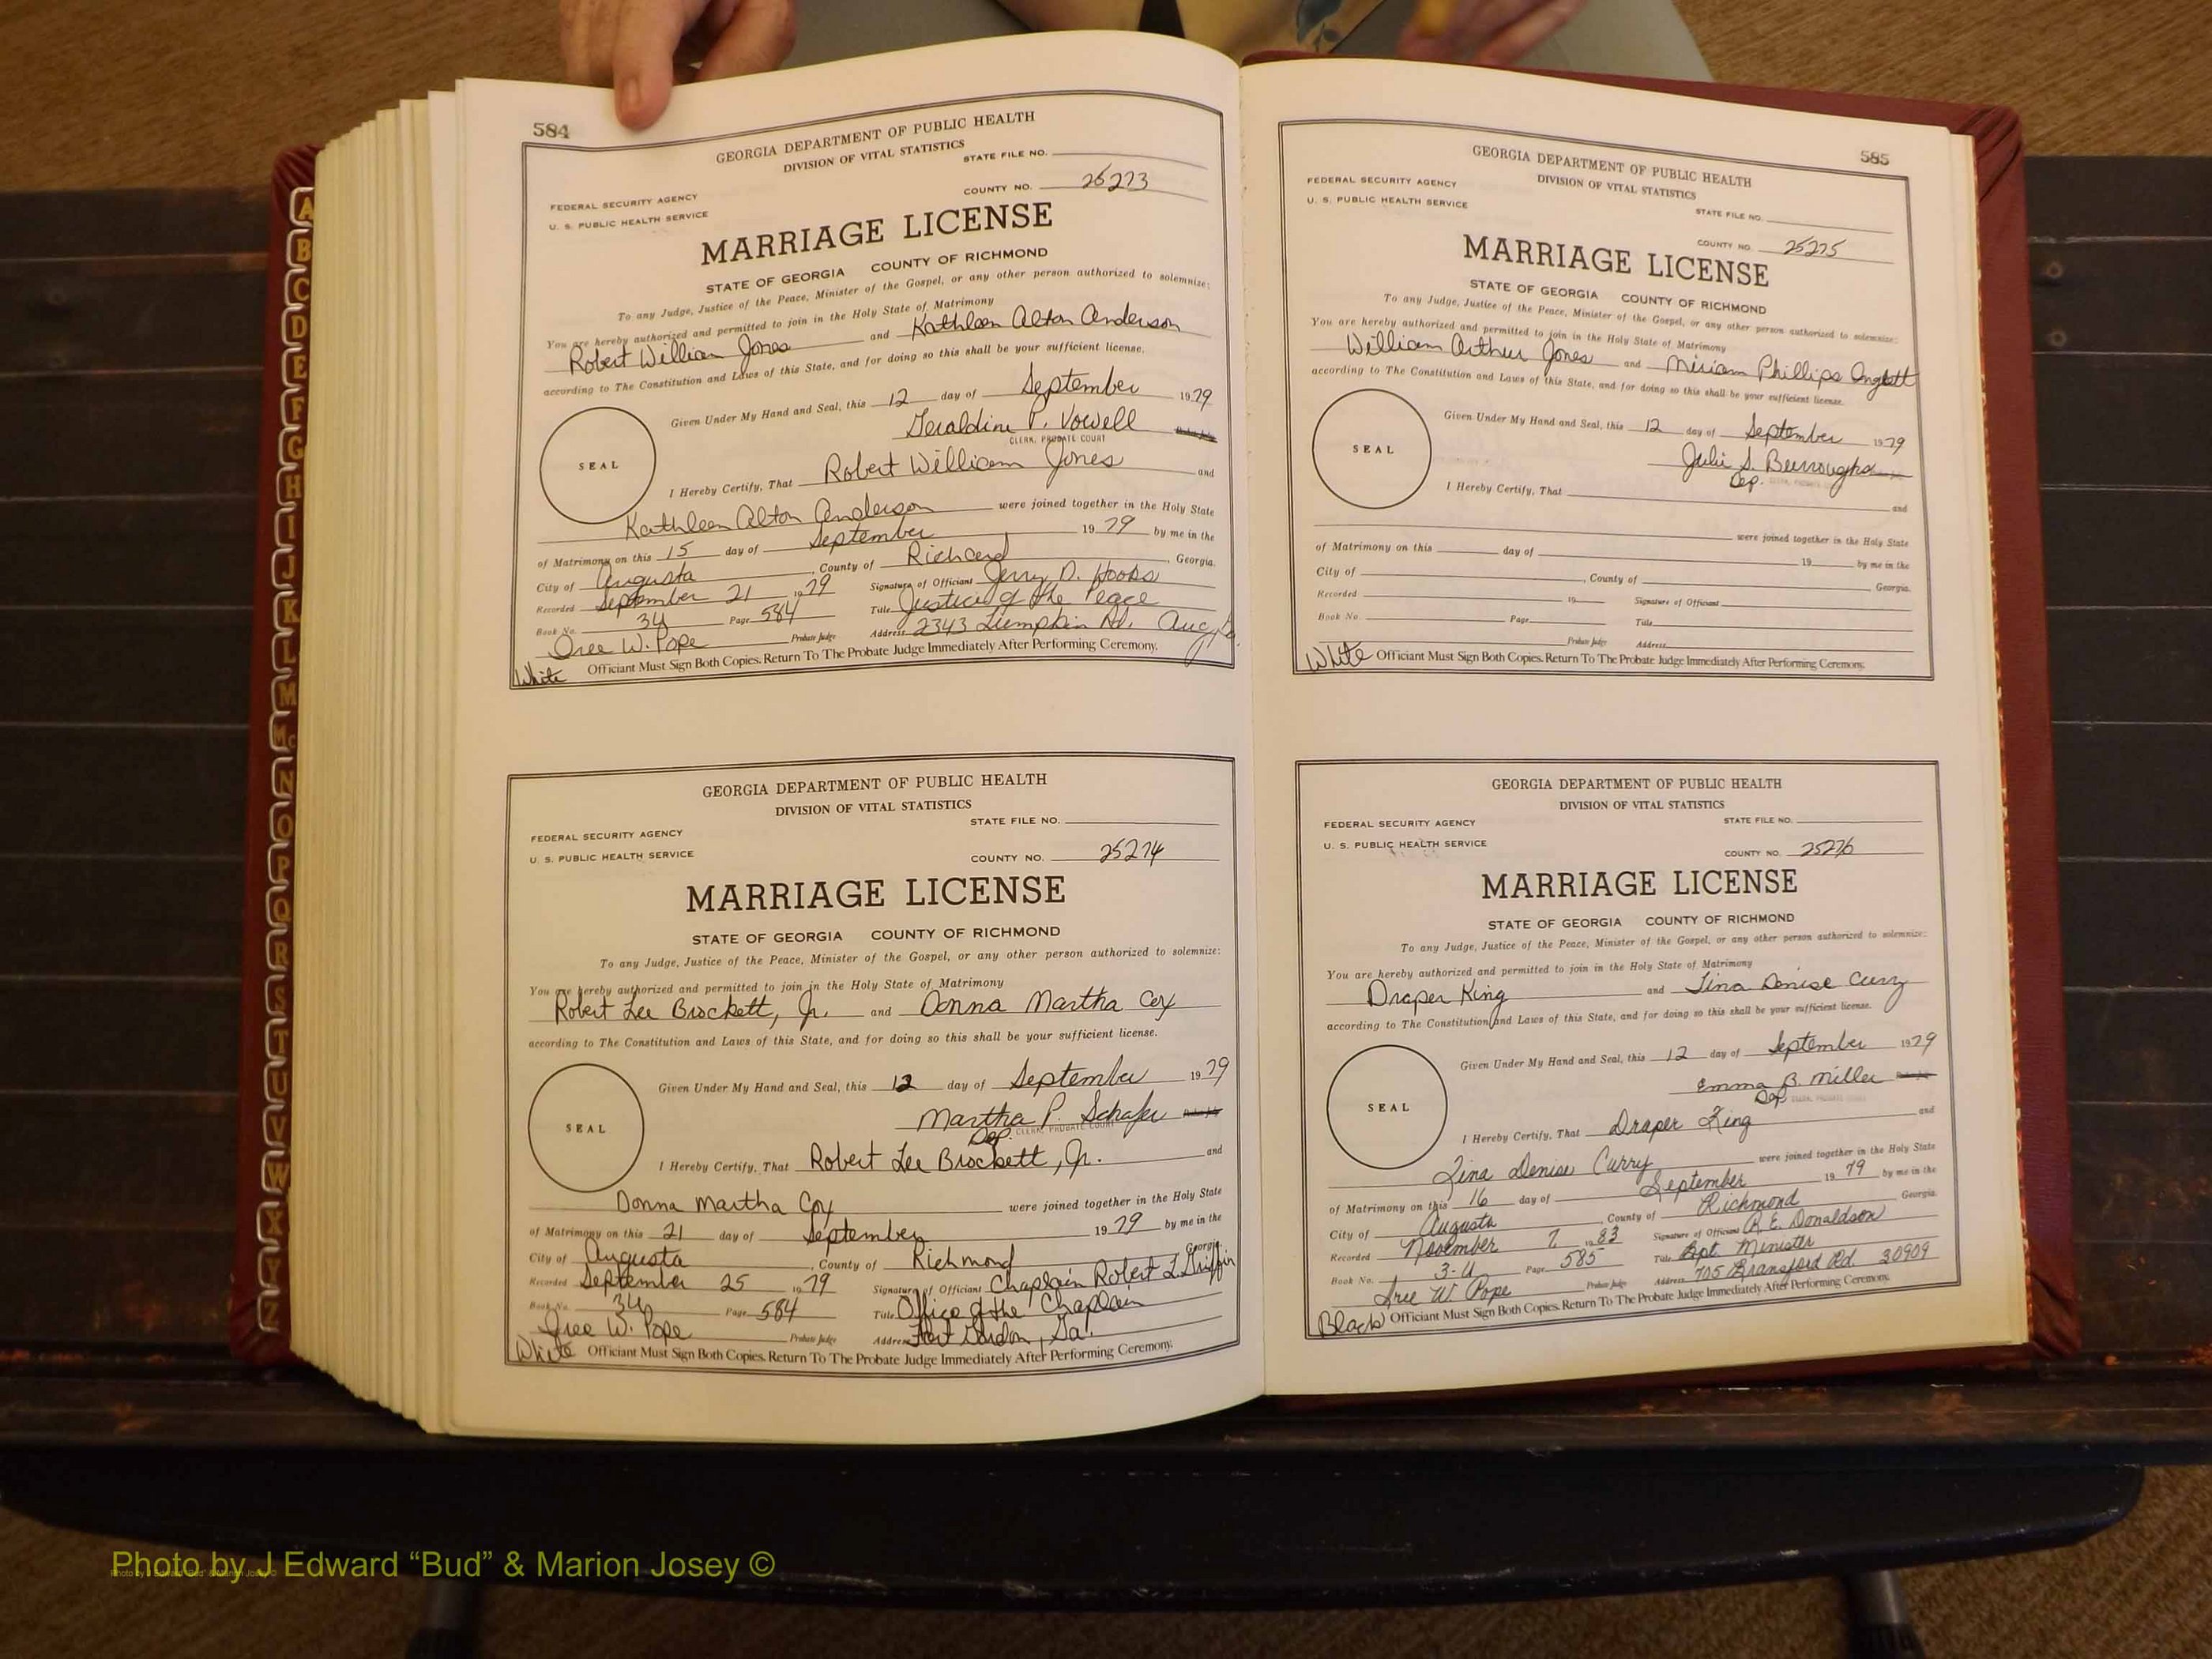 584
GEORGIA DEPARTMENT OF PUBLIC HEALTH
DIVISION OF VITAL STATISTICS
STATE FILE NO.
FEDERAL SECURITY AGENCY
COUNTY NO. 25273
U. S. PUBLIC HEALTH SERVICE
MARRIAGE LICENSE
STATE OF GEORGIA COUNTY OF RICHMOND
To any Judge, Justice of the Peace, Minister of the Gospel, or any other person authorized to solemnize:
You are hereby authorized and permitted to join in the Holy State of Matrimony
Robert William Jones and Kathleen Alton Anderson
according to The Constitution and Laws of this State, and for doing so this shall be your sufficient license.
Given Under My Hand and Seal, this 12 day of September 1979
Geraldine P. Vowell
CLERK, PROBATE COURT
SEAL
I Hereby Certify, That Robert William Jones and
Kathleen Alton Anderson were joined together in the Holy State
of Matrimony on this 15 day of September 1979 by me in the
City of Augusta, County of Richmond, Georgia.
Recorded September 21 1979 Signature of Officiant Jerry D. Hobbs
Book No. 34 Page 584 Title Justice of the Peace
Oree W. Pope Probate Judge Address 2343 Lumpkin Rd.
White Officiant Must Sign Both Copies. Return To The Probate Judge Immediately After Performing Ceremony.
GEORGIA DEPARTMENT OF PUBLIC HEALTH
DIVISION OF VITAL STATISTICS
STATE FILE NO.
FEDERAL SECURITY AGENCY
U. S. PUBLIC HEALTH SERVICE
COUNTY NO. 25274
MARRIAGE LICENSE
STATE OF GEORGIA COUNTY OF RICHMOND
To any Judge, Justice of the Peace, Minister of the Gospel, or any other person authorized to solemnize:
You are hereby authorized and permitted to join in the Holy State of Matrimony
Robert Lee Brockett, Jr. and Donna Martha Cox
according to The Constitution and Laws of this State, and for doing so this shall be your sufficient license.
Given Under My Hand and Seal, this 12 day of September 1979
Martha P. Schafer
Dep. CLERK, PROBATE COURT
SEAL
I Hereby Certify, That Robert Lee Brockett, Jr. and
Donna Martha Cox were joined together in the Holy State
of Matrimony on this 21 day of September 1979 by me in the
City of Augusta, County of Richmond Georgia.
Recorded September 25 1979 Signature of Officiant Chaplain Robert L Griffin
Book No. 34 Page 584 Title Office of the Chaplain
Oree W. Pope Probate Judge Address Fort Gordon, Ga.
White Officiant Must Sign Both Copies. Return To The Probate Judge Immediately After Performing Ceremony.
585
GEORGIA DEPARTMENT OF PUBLIC HEALTH
DIVISION OF VITAL STATISTICS
FEDERAL SECURITY AGENCY
U. S. PUBLIC HEALTH SERVICE
STATE FILE NO.
COUNTY NO. 25275
MARRIAGE LICENSE
STATE OF GEORGIA COUNTY OF RICHMOND
To any Judge, Justice of the Peace, Minister of the Gospel, or any other person authorized to solemnize:
You are hereby authorized and permitted to join in the Holy State of Matrimony
William Arthur Jones and Miriam Phillips
according to The Constitution and Laws of this State, and for doing so this shall be your sufficient license.
Given Under My Hand and Seal, this 12 day of September 1979
Julie S. Burroughs
Dep. CLERK, PROBATE COURT
SEAL
I Hereby Certify, That and
were joined together in the Holy State
of Matrimony on this day of 19 by me in the
City of , County of Georgia.
Recorded 19 Signature of Officiant
Book No. Page Title
Probate Judge Address
White Officiant Must Sign Both Copies. Return To The Probate Judge Immediately After Performing Ceremony.
GEORGIA DEPARTMENT OF PUBLIC HEALTH
DIVISION OF VITAL STATISTICS
FEDERAL SECURITY AGENCY
STATE FILE NO.
U. S. PUBLIC HEALTH SERVICE
COUNTY NO. 25276
MARRIAGE LICENSE
STATE OF GEORGIA COUNTY OF RICHMOND
To any Judge, Justice of the Peace, Minister of the Gospel, or any other person authorized to solemnize:
You are hereby authorized and permitted to join in the Holy State of Matrimony
Draper King and Tina Denise Curry
according to The Constitution and Laws of this State, and for doing so this shall be your sufficient license.
Given Under My Hand and Seal, this 12 day of September 1979
Emma B. Miller
Dep. CLERK, PROBATE COURT
SEAL
I Hereby Certify, That Draper King and
Tina Denise Curry were joined together in the Holy State
of Matrimony on this 16 day of September 1979 by me in the
City of Augusta, County of Richmond Georgia.
Recorded November 7 1983 Signature of Officiant R. E. Donaldson
Book No. 3-U Page 585 Title Bpt. Minister
Oree W Pope Probate Judge Address 705 Bransford Rd. 30909
Black Officiant Must Sign Both Copies. Return To The Probate Judge Immediately After Performing Ceremony.
A
B
C
D
E
F
G
H
I
J
K
L
M
Mc
N
O
P
Q
R
S
T
U
V
W
X
Y
Z
Photo by J Edward “Bud” & Marion Josey ©